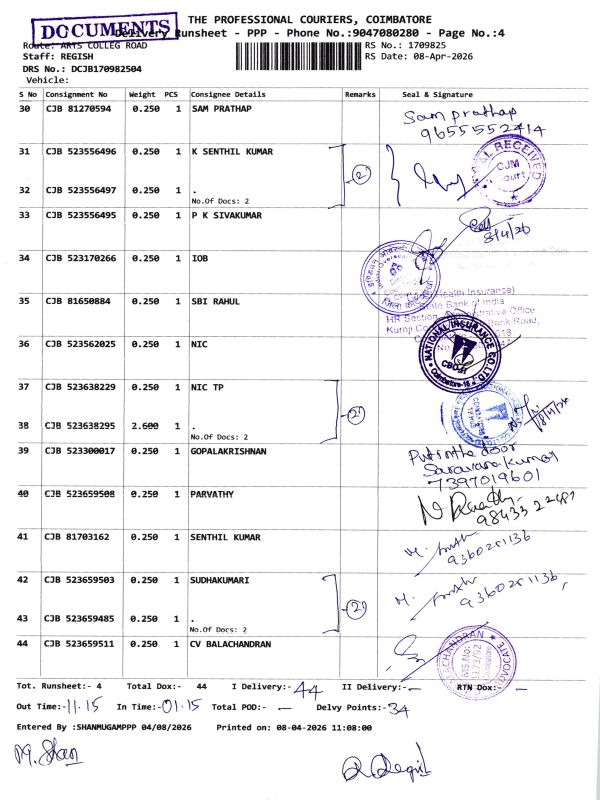 THE PROFESSIONAL COURIERS, COIMBATORE
DOCUMENTS
Delivery Runsheet - PPP - Phone No.:9047080280 - Page No.:4
Route: ARTS COLLEG ROAD
RS No.: 1709825
Staff: REGISH
RS Date: 08-Apr-2026
DRS No.: DCJB170982504
Vehicle:
S No Consignment No Weight PCS Consignee Details Remarks Seal & Signature
30 CJB 81270594 0.250 1 SAM PRATHAP
Sam prathap
9655552414
31 CJB 523556496 0.250 1 K SENTHIL KUMAR
2
RECEIVED
CJM
Court
32 CJB 523556497 0.250 1 .
No.Of Docs: 2
33 CJB 523556495 0.250 1 P K SIVAKUMAR
8/4/26
34 CJB 523170266 0.250 1 IOB
35 CJB 81650884 0.250 1 SBI RAHUL
(Health Insurance)
State Bank of India
HR Section, Administrative Office
Bank Road,
36 CJB 523562025 0.250 1 NIC
NATIONAL INSURANCE CO LTD
CBO.II
Coimbatore-18
37 CJB 523638229 0.250 1 NIC TP
2
38 CJB 523638295 2.600 1 .
No.Of Docs: 2
39 CJB 523300017 0.250 1 GOPALAKRISHNAN
Put in the door
Saravana kumar
7397019601
40 CJB 523659508 0.250 1 PARVATHY
98433 22487
41 CJB 81703162 0.250 1 SENTHIL KUMAR
9360281136
42 CJB 523659503 0.250 1 SUDHAKUMARI
9360281136,
2
43 CJB 523659485 0.250 1 .
No.Of Docs: 2
44 CJB 523659511 0.250 1 CV BALACHANDRAN
BALACHANDRAN
MS.No:
1173/92
Coimbatore
ADVOCATE
Tot. Runsheet:- 4 Total Dox:- 44 I Delivery:- 44 II Delivery:- - RTN Dox:- -
Out Time:- 11.15 In Time:- 01.15 Total POD:- - Delvy Points:- 34
Entered By :SHANMUGAMPPP 04/08/2026 Printed on: 08-04-2026 11:08:00
M. Shan
R. Regish